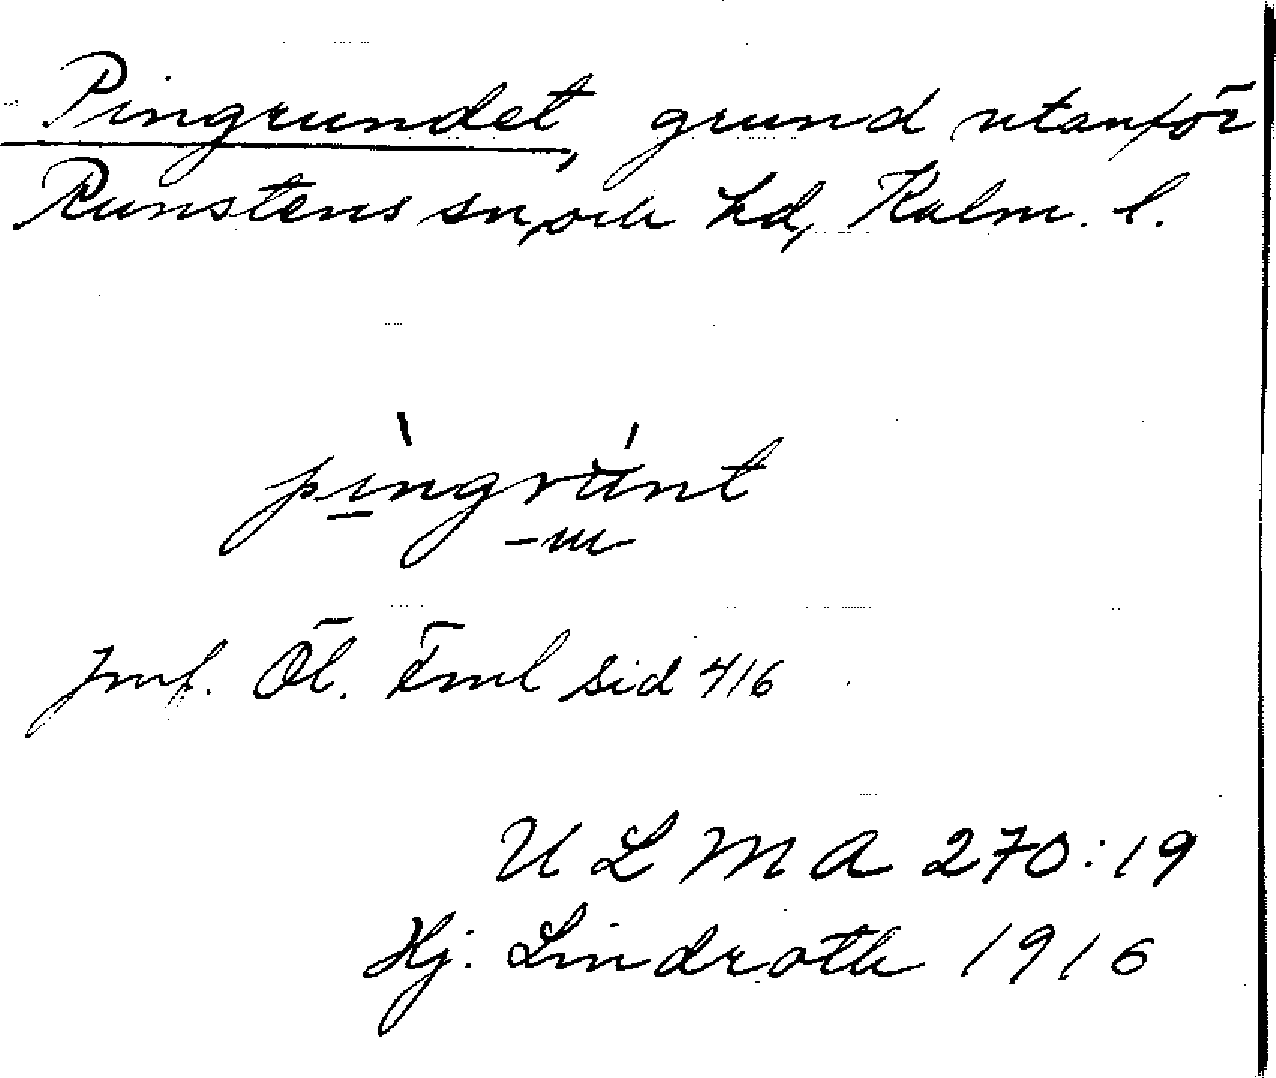 Pingrundet, grund utanför
Runstens sn och hd, Kalm. l.
pìngrúnt
-m
Jmf. Öl. Förml sid 416
ULMA 270:19
Hj. Lindroth 1916